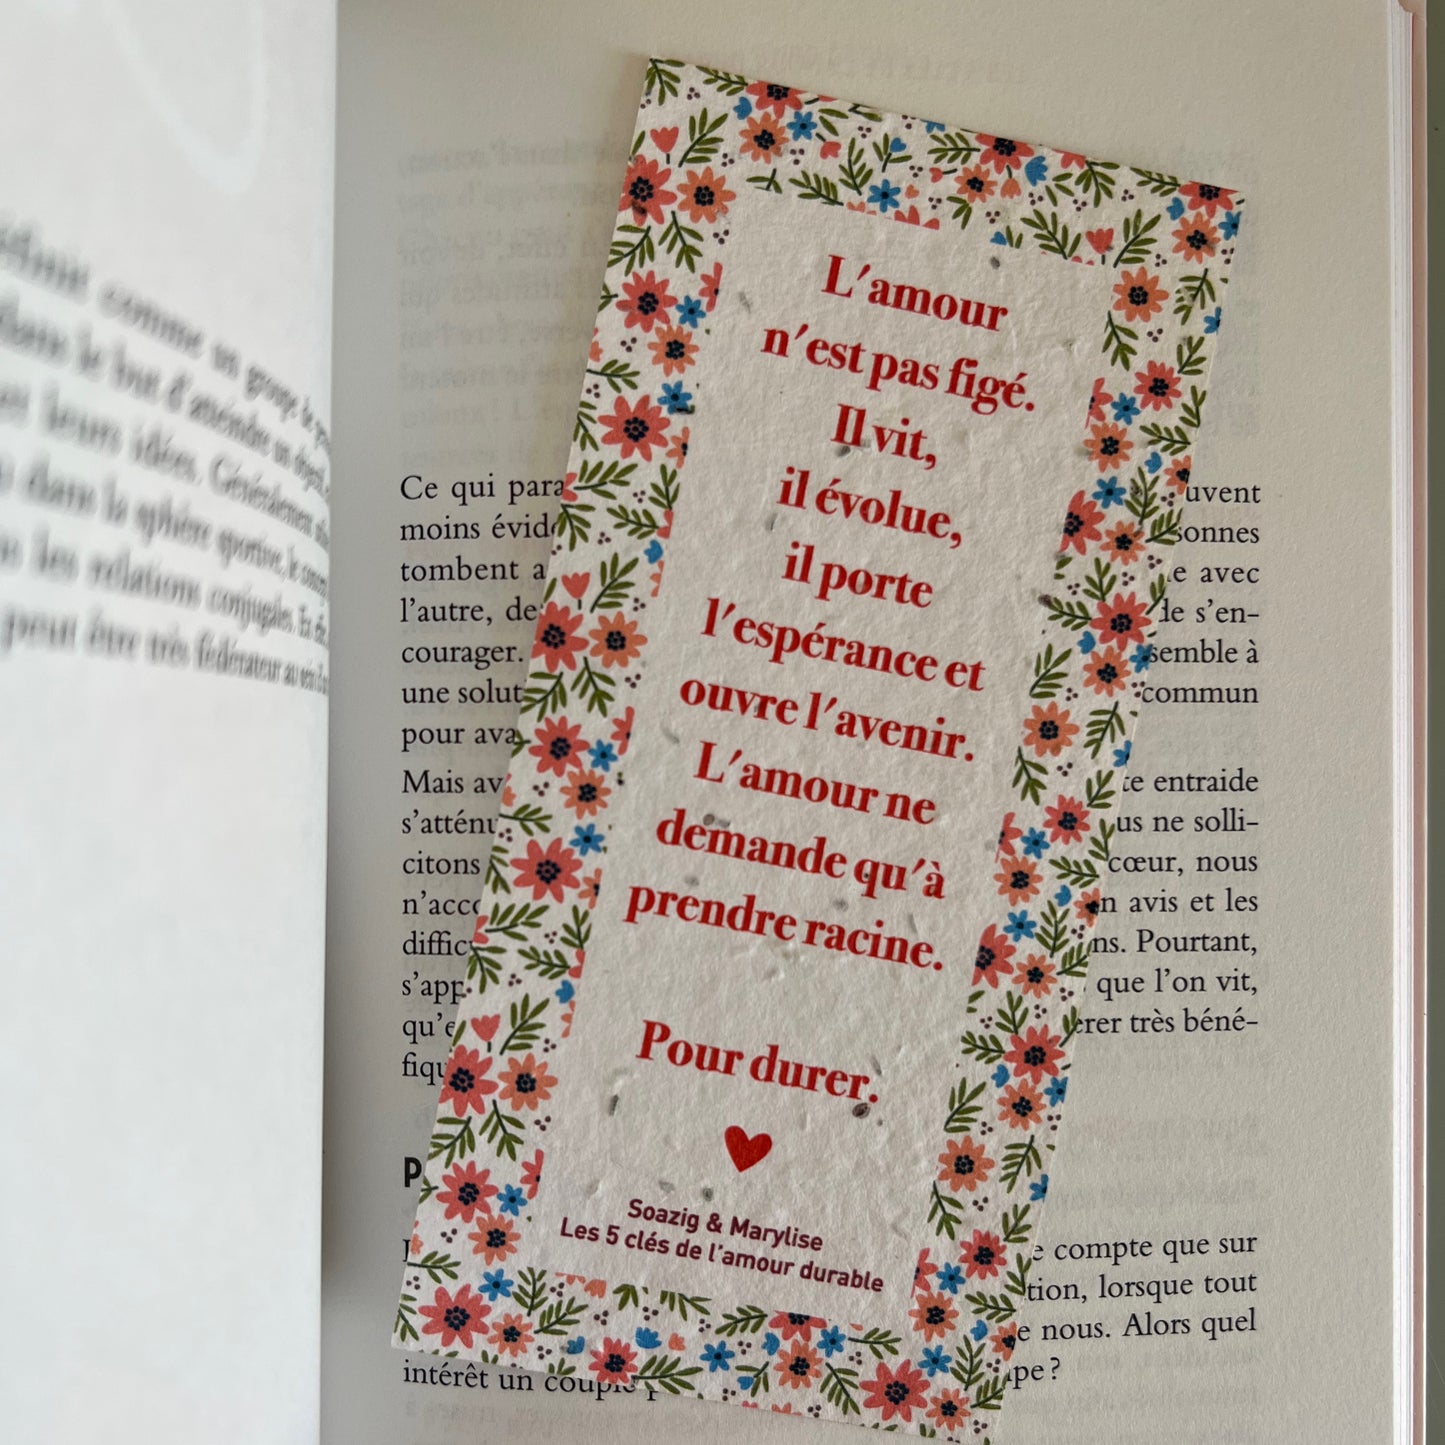 éfinit comme un groupe
dans le but d'atteindre un
leurs idées. Généralement
dans la sphère sportive, le
les relations conjugales. En
peut être très fédérateur au
L'amour
n'est pas figé.
Il vit,
il évolue,
il porte
l'espérance et
ouvre l'avenir.
L'amour ne
demande qu'à
prendre racine.
Pour durer.
Soazig & Marylise
Les 5 clés de l'amour durable
Ce qui para uvent
moins évid sonnes
tombent a e avec
l'autre, de de s'en-
courager. semble à
une solut commun
pour ava
Mais av te entraide
s'atténu us ne solli-
citons cœur, nous
n'acco n avis et les
diffic ns. Pourtant,
s'app que l'on vit,
qu'e érer très béné-
fiqu
P
e compte que sur
tion, lorsque tout
e nous. Alors quel
intérêt un couple pe ?